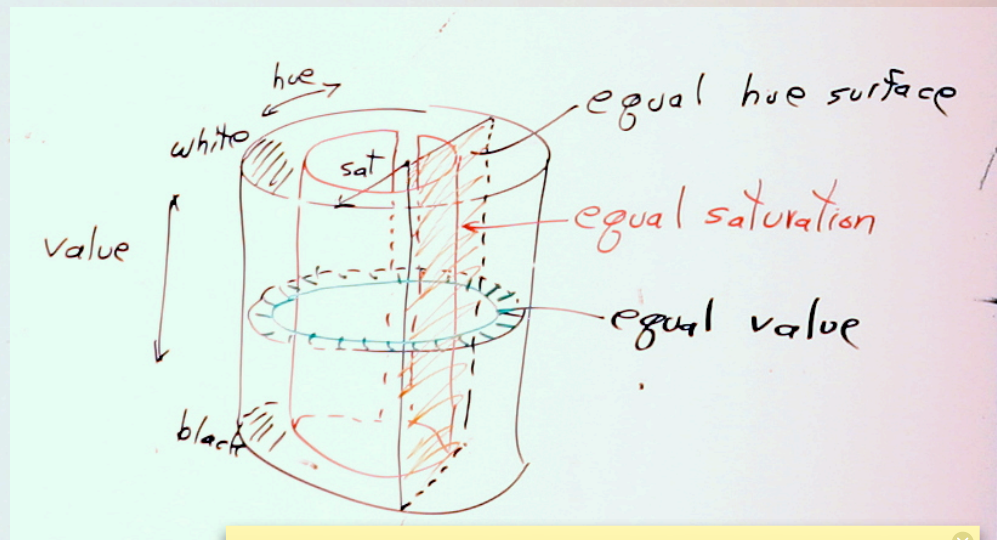 hue
white
sat
equal hue surface
equal saturation
value
equal value
black